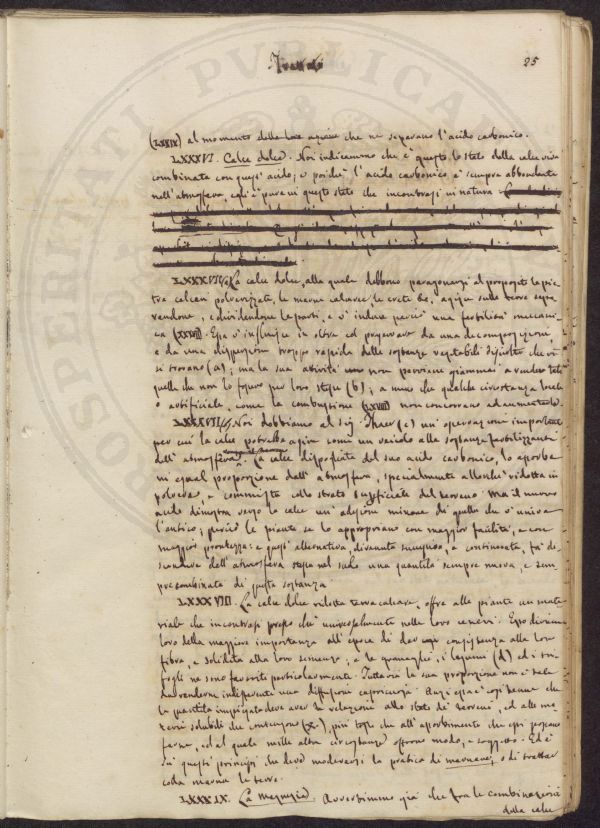 Trattato
25
(LXXIX) al momento della loro azione che ne separano l'acido carbonico.
LXXXVI. Calce dolce. Noi indicammo che è questo lo stato della calce viva
combinata con quest'acido; e poichè l'acido carbonico è sempre abbondante
nell'atmosfera, egli è pure in questo stato che incontrasi in natura
LXXXVII La calce dolce, alla quale debbono paragonarsi a proposito le pie-
tre calcari polverizzate, le marne calcaree le crete &c, agisce sulla terra
vandone, e dividendone le parti, e v'induce perciò una fertilità meccani-
ca (XXVII). Essa v'influisce in oltre col preservare da una decomposizione,
e da una dispersione troppo rapida delle sostanze vegetabili disciolte che vi
si trovano (a); ma la sua attività non perviene giammai a render tali
quelle che non lo fossero per loro stesse (b); a meno che qualche circostanza locale
o artificiale, come la combustione (LXVIII) non concorrano ad aumentarla.
LXXXVII Noi dobbiamo al Sig. Thaer (c) un'osservazione importante
per cui la calce potrebbe agire come un veicolo alla sostanza fertilizzante
dell'atmosfera. La calce dispogliata del suo acido carbonico, lo assorbe
in egual proporzione dall'atmosfera, specialmente allorchè ridotta in
polvere, e commista collo strato superficiale del terreno. Ma il nuovo
acido dimostra verso la calce un'adesione minore di quello che v'univa
l'antico; perciò le piante se lo appropriano con maggior facilità, e con
maggior prontezza: e quest'alternativa, divenuta successiva, e continuata, fa di-
scendere dall'atmosfera stessa nel suolo una quantità sempre nuova, e sem-
pre combinata di questa sostanza
LXXXVIII. La calce dolce ridotta terra calcare, offre alle piante un mate-
riale che incontrasi presso che universalmente nelle loro ceneri. Esso diviene
loro della maggiore importanza all'epoca di dar consistenza alla loro
fibra, e solidità alla loro semenza; e le graminacee, i legumi (d) ed i tri-
fogli ne sono favoriti particolarmente. Tuttavia la sua proporzione non è tale
da renderne indifferente una diffusione capricciosa. Anzi essa è così tenue che
la quantità impiegata deve aver le relazione allo stato de' terreni, ed alle ma-
terie solubili che contengono (X), più tosto che all'assorbimento che essi possono
farne, ed al quale mille altre circostanze offrono modo, e soggetto. Ed è
su questi principj che devesi moderarsi la pratica di marnare, o di trattar
colla marna le terre.
LXXXIX. La magnesia. Avvertimmo già che fra le combinazioni
della calce